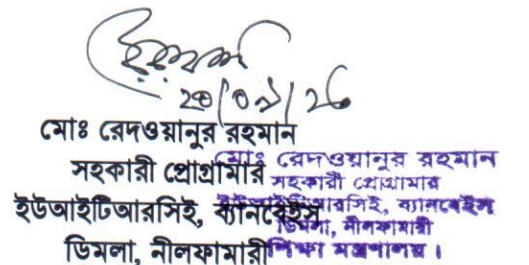 মোঃ রেদওয়ানুর রহমান
সহকারী প্রোগ্রামার
ইউআইটিআরসিই, ব্যানবেইস
ডিমলা, নীলফামারী
মোঃ রেদওয়ানুর রহমান
সহকারী প্রোগ্রামার
ইউআইটিআরসিই, ব্যানবেইস
ডিমলা, নীলফামারী
শিক্ষা মন্ত্রণালয়।